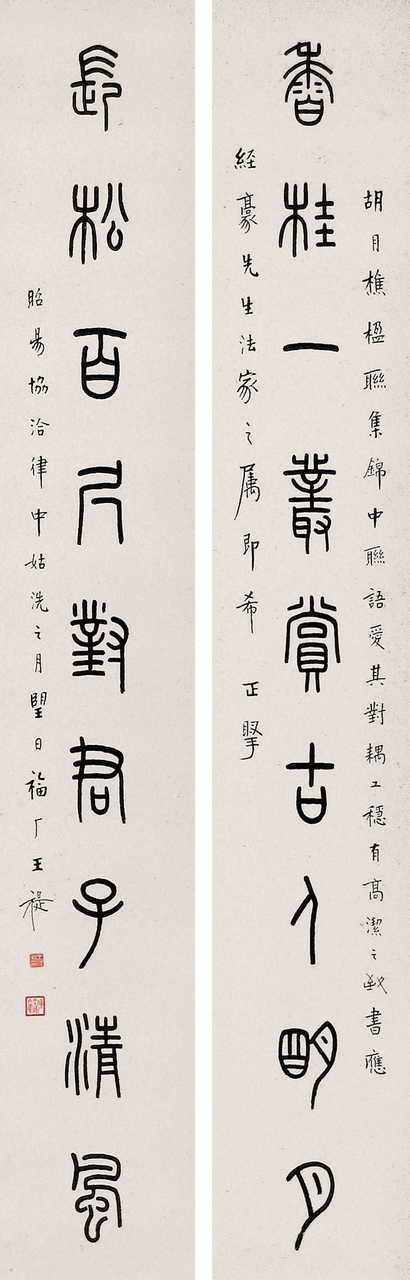 胡月樵楹聯集錦中聯語愛其對耦工穩有高潔之致書應
香桂一叢賞古人明月
經豪先生法家之属即希正擥
長松百尺對君子清風
昭昜協洽律中姑洗之月朢日福厂王禔